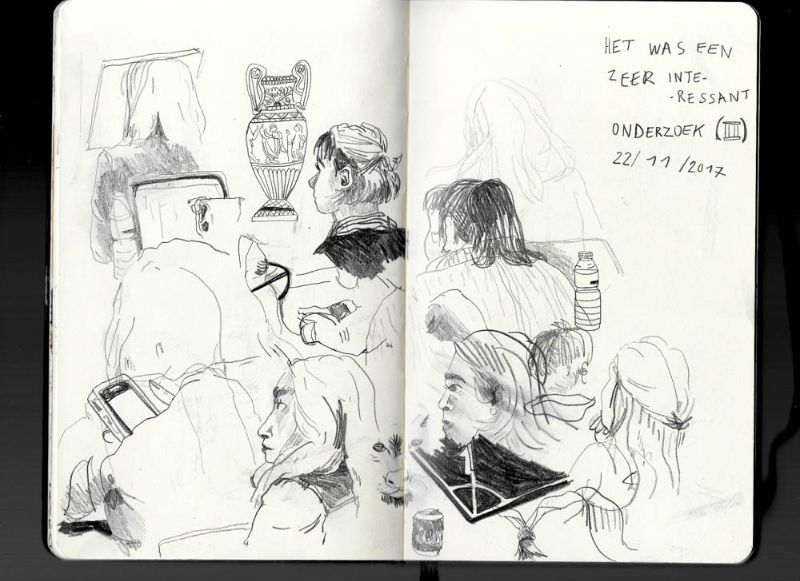 HET WAS EEN
ZEER INTE-
-RESSANT
ONDERZOEK (III)
22/11/2017